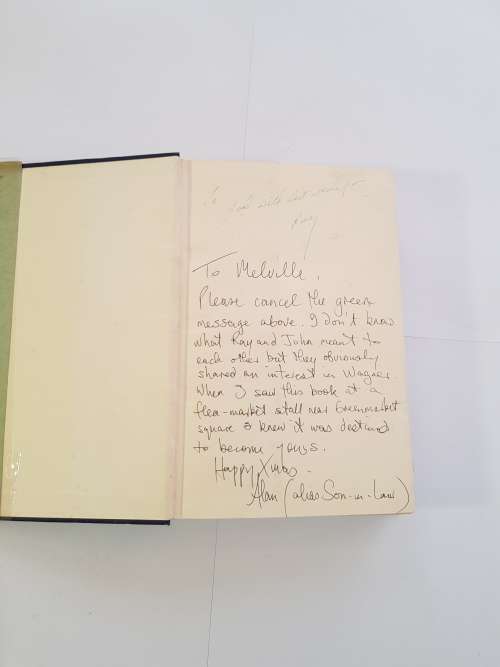 To
John with best wishes
Ray
To Melville.
Please cancel the green
message above. I don't know
what Ray and John meant to
each other but they obviously
shared an interest in Wagner.
When I saw this book at a
flea-market stall near Greenmarket
square I knew it was destined
to become yours.
Happy Xmas.
Alan (alias Son-in-Law)